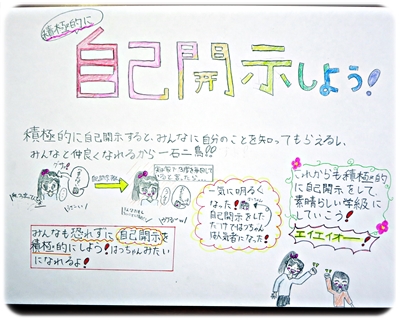 積極的に
自己開示しよう!
積極的に自己開示すると、みんなに自分のことを知ってもらえるし、
みんなと仲良くなれるから一石二鳥!!
自己開示後
一気に明るく
なった!
自己開示をした
だけではっちゃん
は人気者になった!
これからも積極的
に自己開示をして、
素晴らしい等級に
していこう!
エイエイオー!
みんなも恐れずに自己開示を
積極的にしよう!はっちゃんみたい
になれるよ!